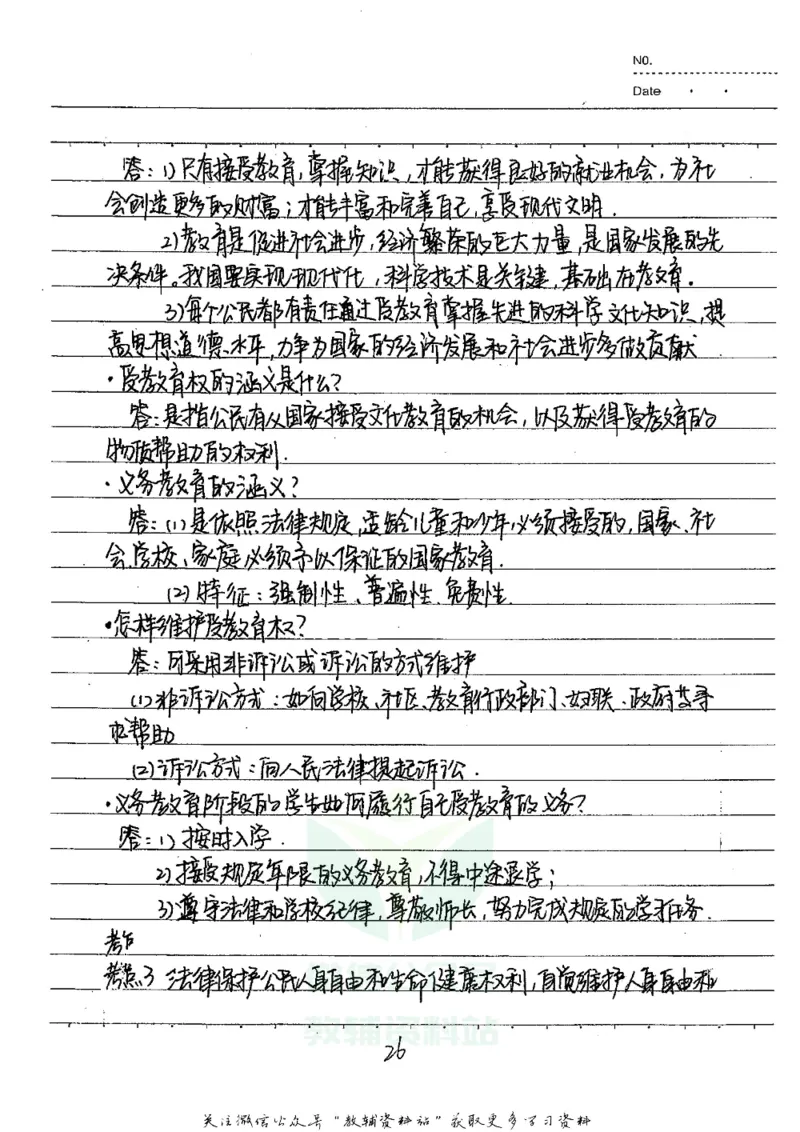 NO.
Date
答：1)只有接受教育，掌握知识，才能获得良好的就业机会，为社
会创造更多的财富；才能丰富和完善自己，享受现代文明．
2)教育是促进社会进步，经济繁荣的巨大力量，是国家发展的先
决条件。我国要实现现代化，科学技术是关键，基础在教育．
3)每个公民都有责任通过受教育掌握先进的科学文化知识，提
高思想道德水平，力争为国家的经济发展和社会进步多做贡献
·受教育权的涵义是什么？
答：是指公民有从国家接受文化教育的机会，以及获得受教育的
物质帮助的权利．
·义务教育的涵义？
答：(1)是依照法律规定，适龄儿童和少年必须接受的，国家、社
会、学校、家庭必须予以保证的国家教育．
(2)特征：强制性、普遍性、免费性．
·怎样维护受教育权？
答：可采用非诉讼或诉讼的方式维护
(1)非诉讼方式：如向学校、社区、教育行政部门、妇联、政府等寻
求帮助
(2)诉讼方式：向人民法律提起诉讼．
·义务教育阶段的学生如何履行自己受教育的义务？
答：1)按时入学．
2)接受规定年限的义务教育，不得中途退学；
3)遵守法律和学校纪律，尊敬师长，努力完成规定的学习任务．
考点3 法律保护公民人身自由和生命健康权利，自觉维护人身自由和
教辅资料站
26
关注微信公众号"教辅资料站"获取更多学习资料